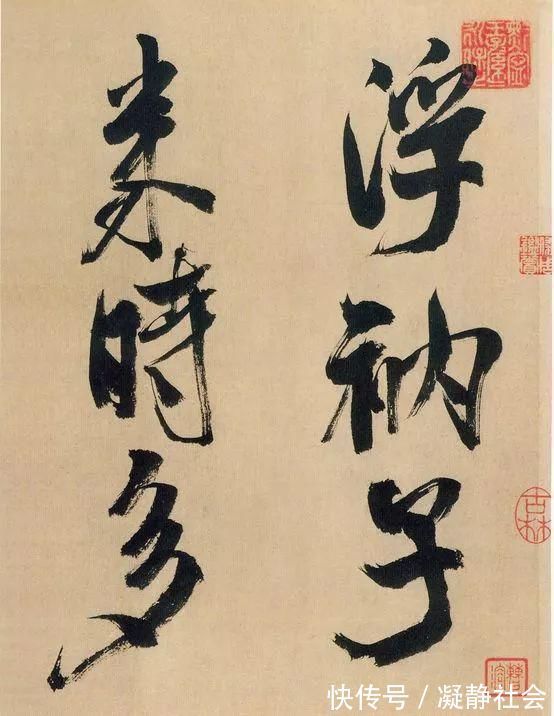 浮衲子
来時多
古林
快传号／凝静社会